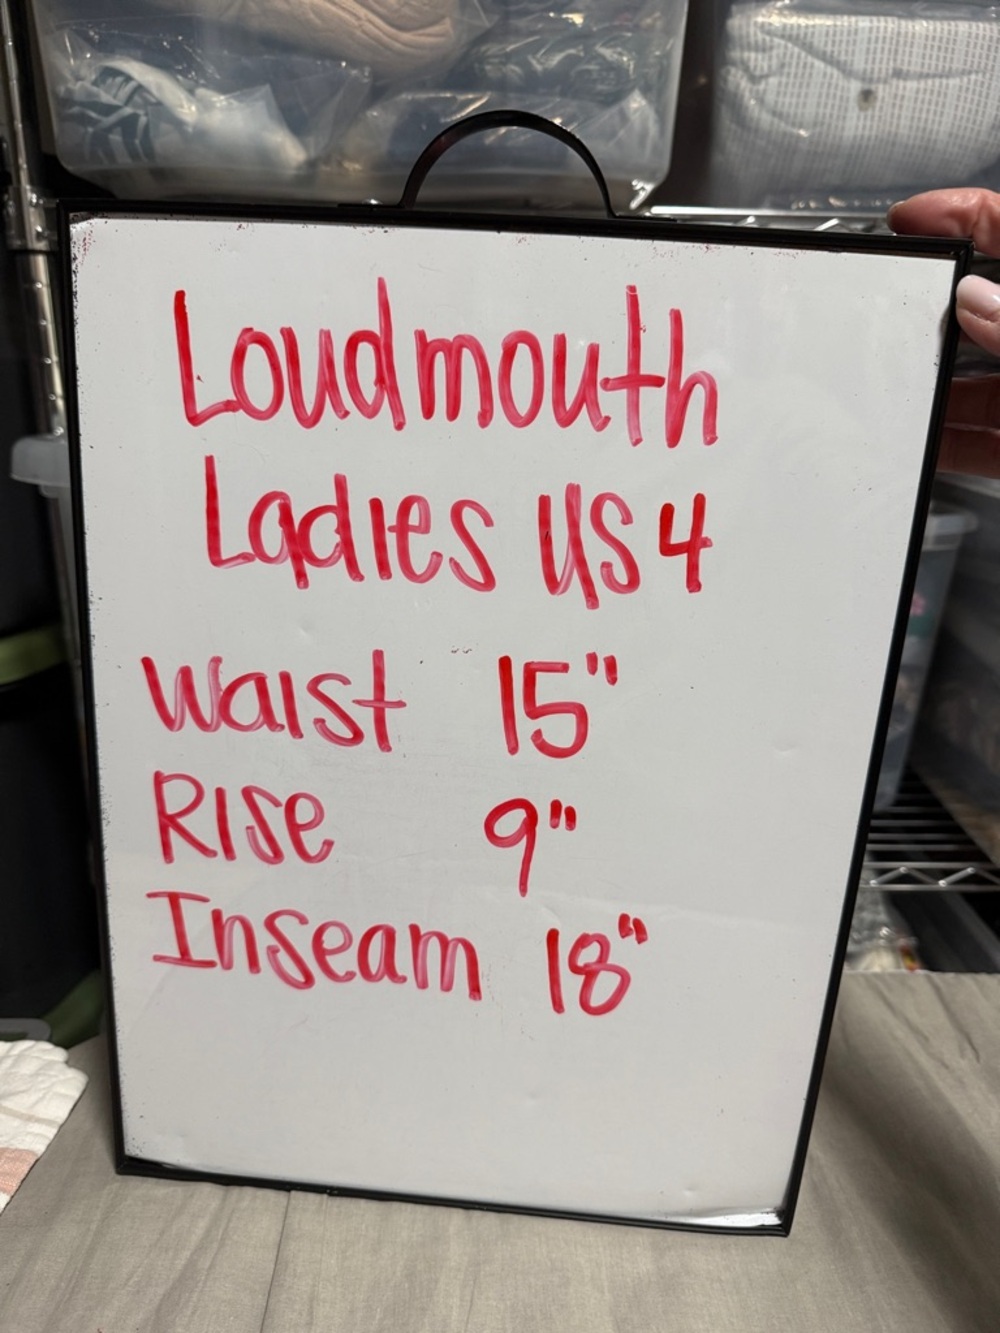 Loudmouth
Ladies US 4
Waist 15"
Rise 9"
Inseam 18"